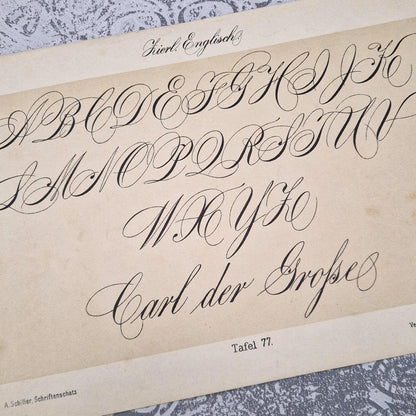 Zierl. Englisch.
A B C D E F G H I J K
L M N O P Q R S T U V
W X Y Z
Carl der Große
Tafel 77.
A. Schiller, Schriftenschatz
Ve